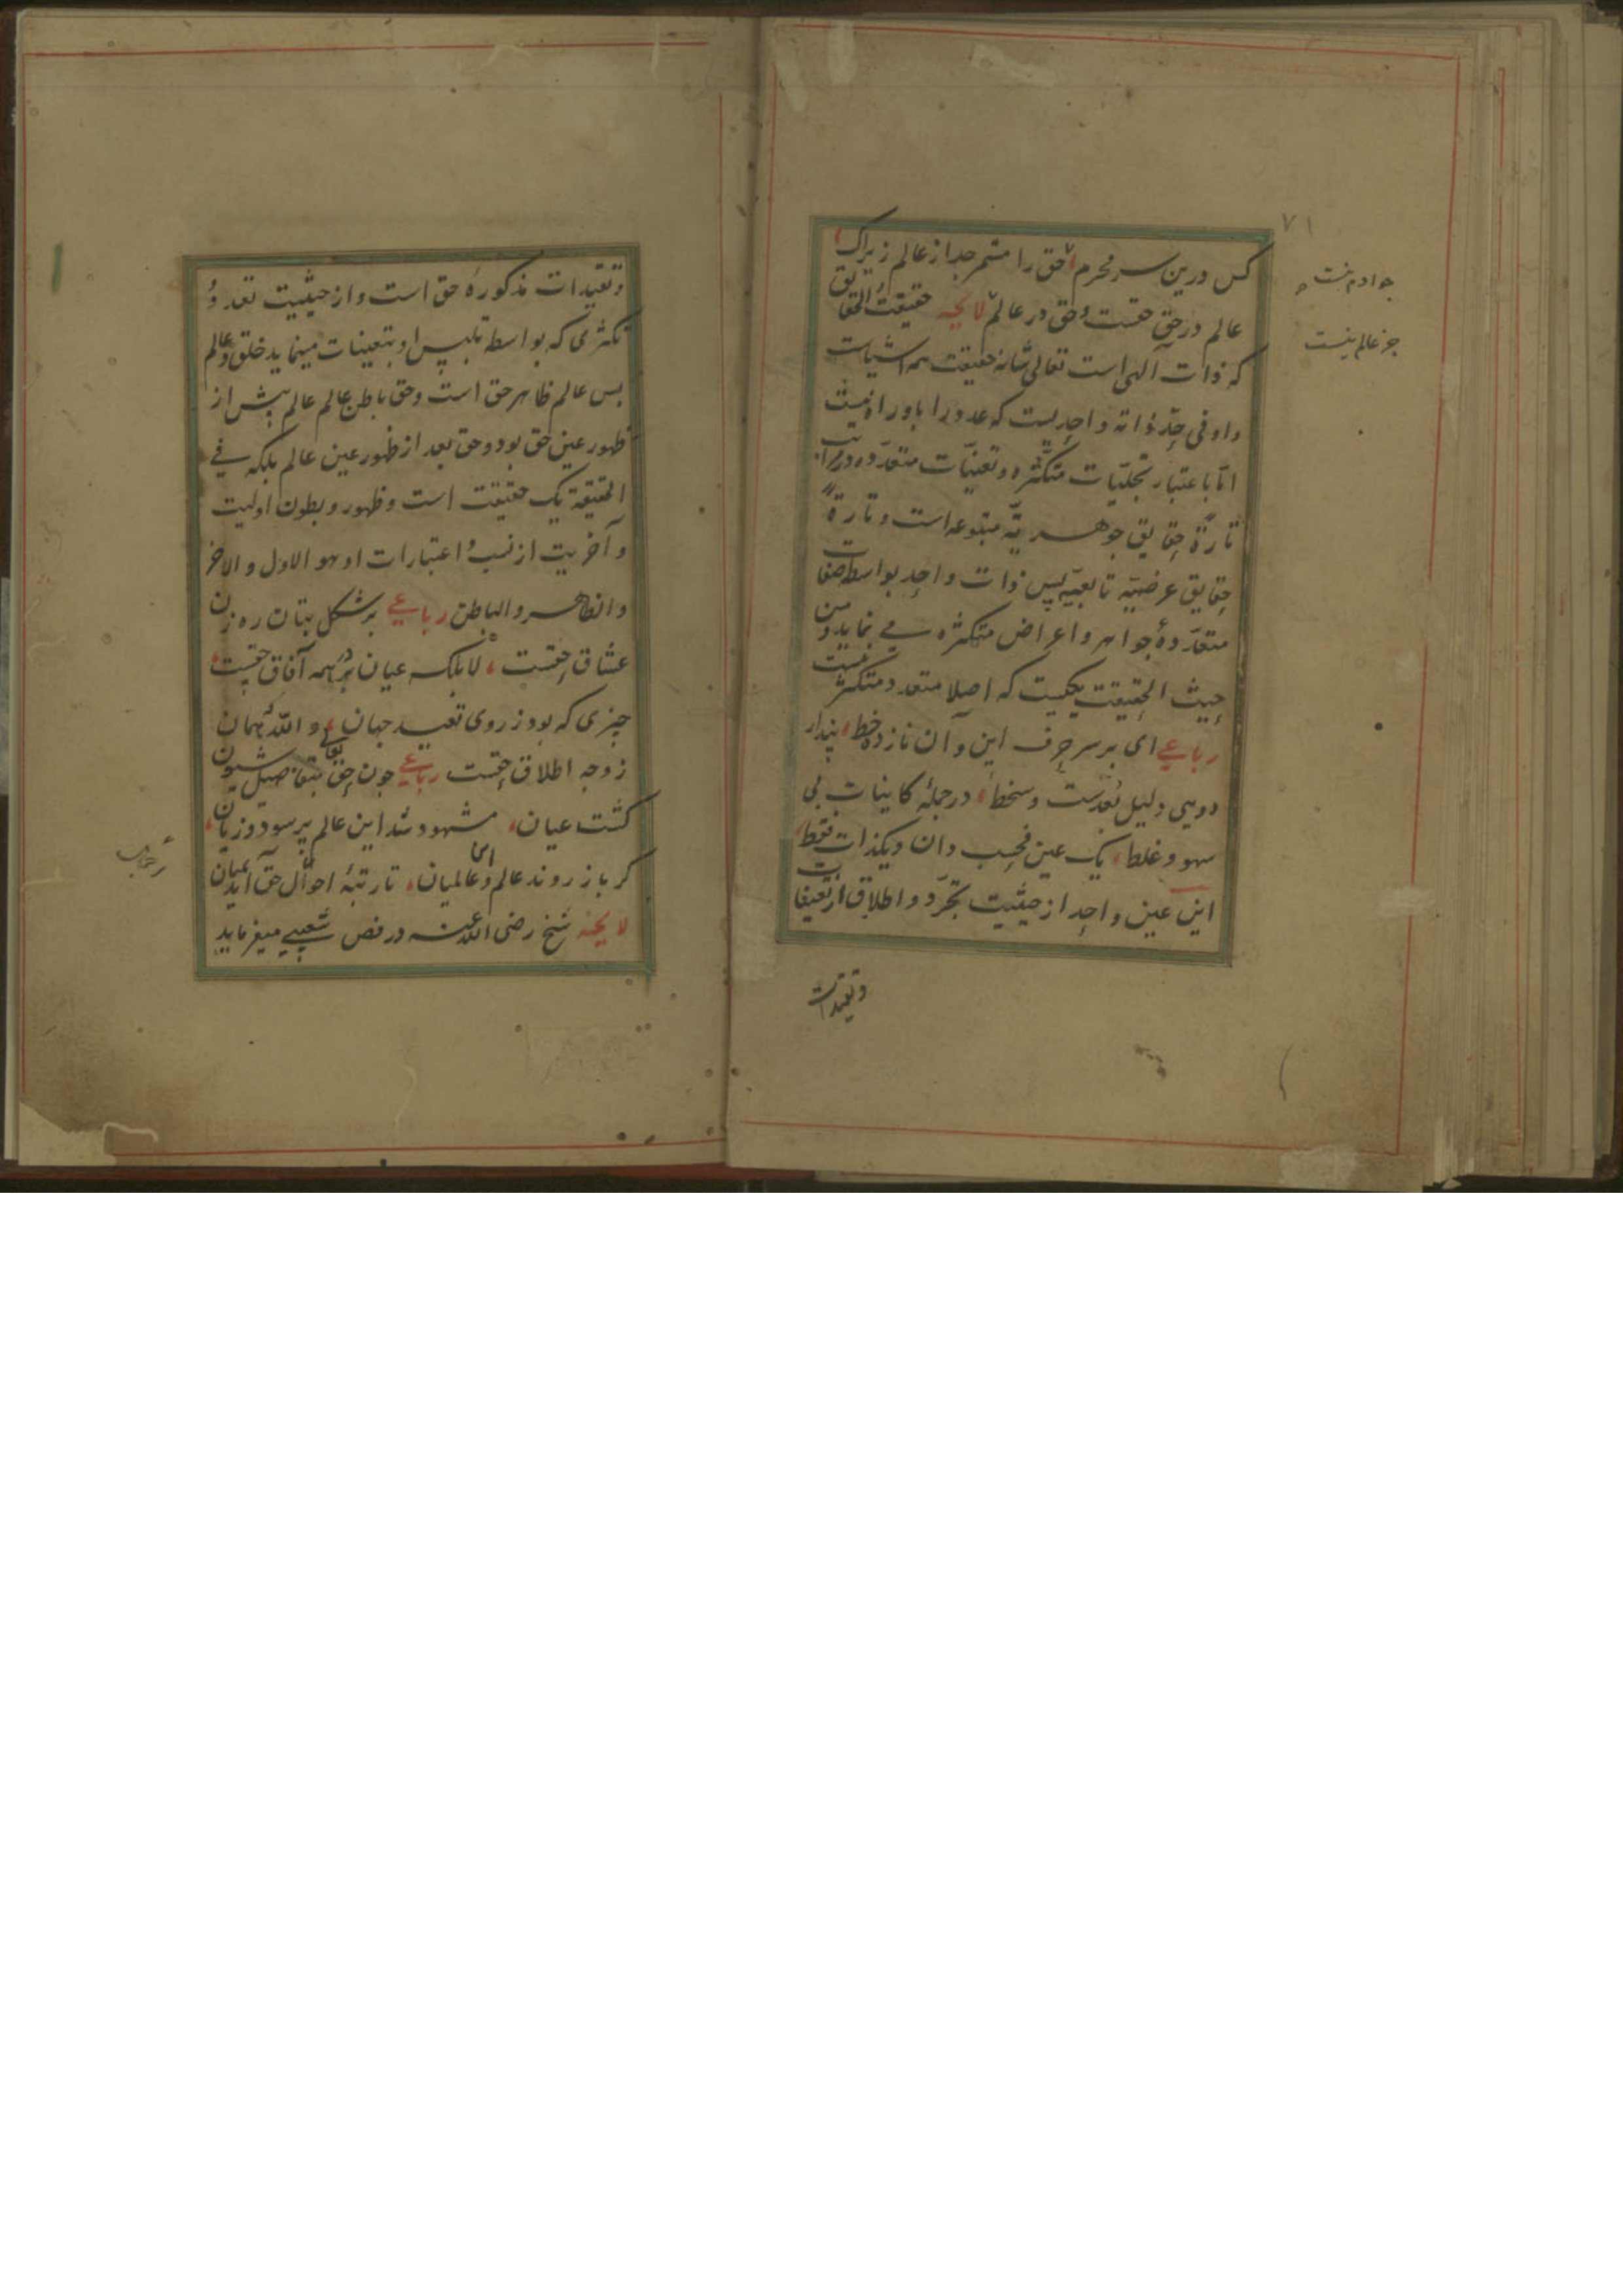 ۷۱
کس درین سر محرم حق را مشمر جدا از عالم زیراک
عالم در حق حقست و حق در عالم لایحه حقیقت الحقایق
که ذات آلهی است تعالی شانه حقیقت همه اشیاست
و او فی حد ذاته واحدیست که عدد را باو راه نیست
اما باعتبار تجلیات متکثره و تعینات متعدده در مراتب
تارة حقایق جوهریه متبوعه است و تارة
حقایق عرضیه تابعیه پس ذات واحد بواسطه صفات
متعدده جواهر و اعراض متکثره می نماید و من
حیث الحقیقت یکیست که اصلا متعدد و متکثر نیست
رباعی ای بر سر حرف این و آن نازده خط پندار
دویی دلیل بعدست و سخط در جمله کاینات بی
سهو و غلط یک عین فحسب دان و یکذات فقط
این عین واحد از حیثیت تجرد و اطلاق از تعینات
و تقیدات
جز عالم نیست
و تقیدات مذکوره حق است و از حیثیت تعدد و
تکثری که بواسطه تلبس او بتعینات مینماید خلق و عالم
پس عالم ظاهر حق است و حق باطن عالم عالم پیش از
ظهور عین حق بود و حق بعد از ظهور عین عالم بلکه فی
الحقیقة یک حقیقت است و ظهور و بطون اولیت
و آخریت از نسب و اعتبارات او هو الاول و الاخر
و الظاهر و الباطن رباعی بر شکل بتان ره زن
عشاق حقست لا بلکه عیان در همه آفاق حقست
چیزی که بود ز روی تقیید جهان و الله که همان
ز وجه اطلاق حقست رباعی چون حق بتفاصیل شیون
کشت عیان مشهود شد این عالم پر سود و زیان
کر باز روند عالم و عالمیان تا رتبهٔ اجمال حق آید بمیان
لایحه شیخ رضی الله عنه در فص شعیبی میفرماید